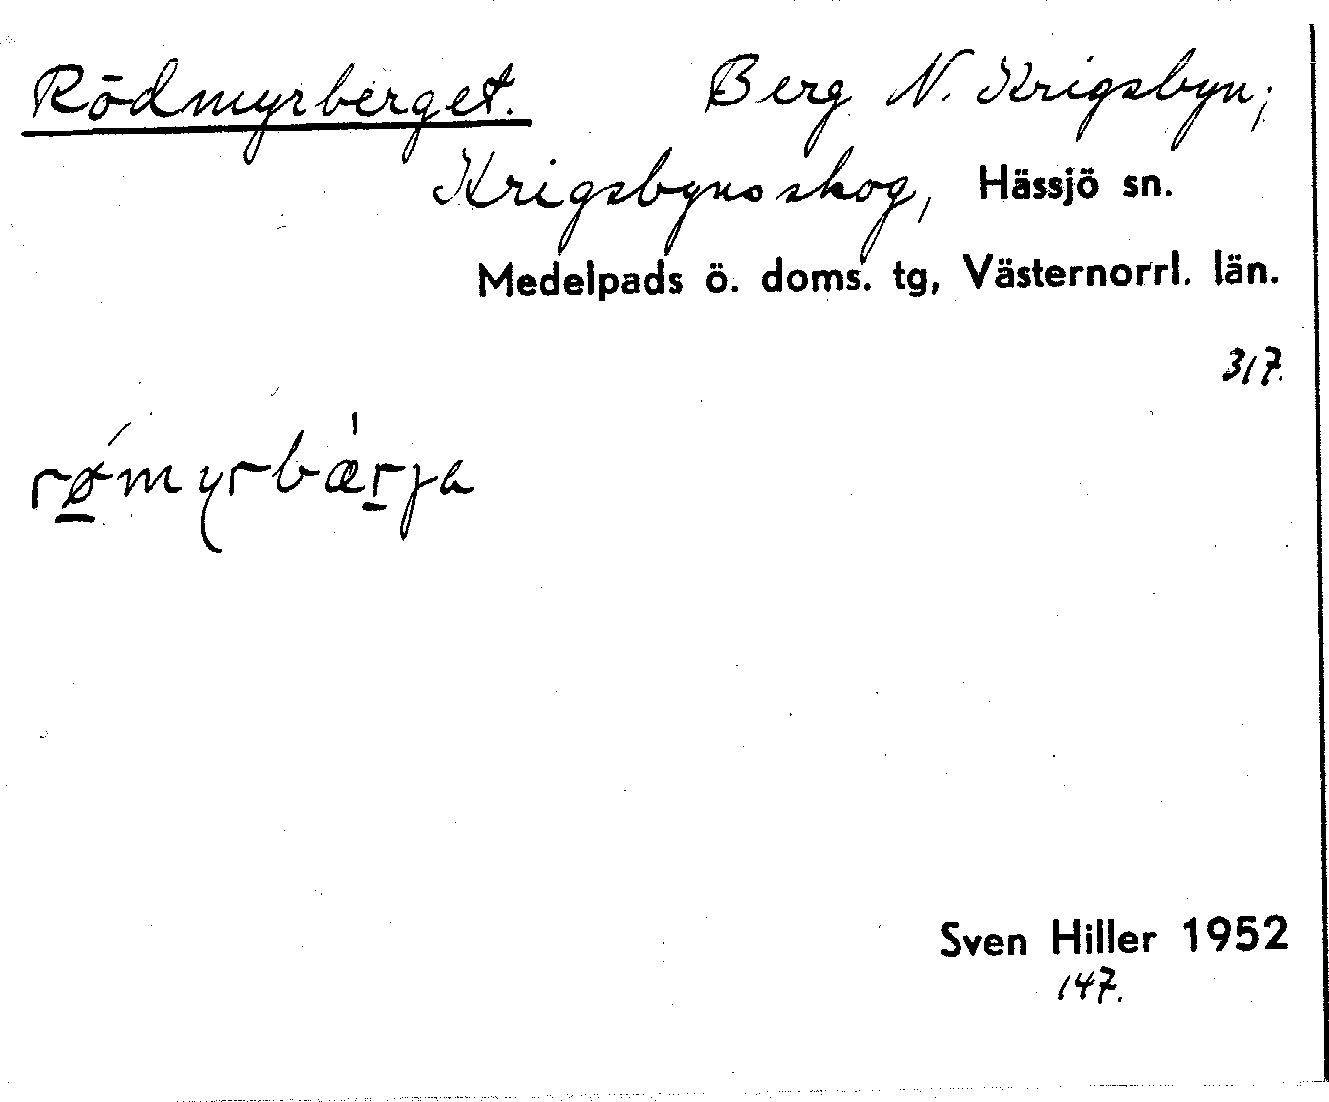 Rödmyrberget. Berg N. Krigsbyn;
Krigsbyns skog, Hässjö sn.
Medelpads ö. doms. tg, Västernorrl. län.
317.
rǿ̱myrbæ̀ṟja
Sven Hiller 1952
147.